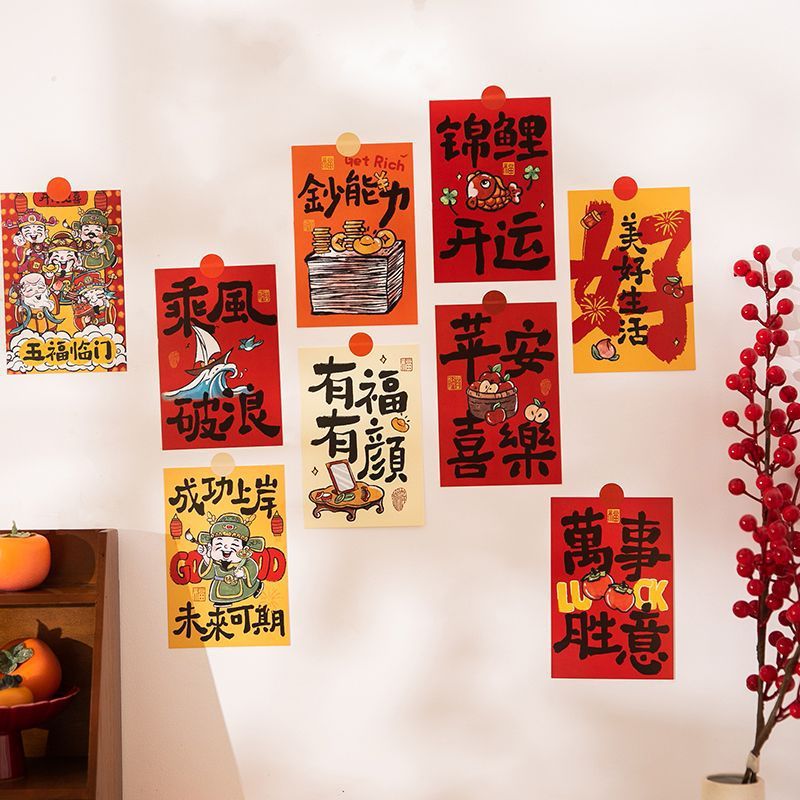 五福临门
乘風
破浪
成功上岸
GOOD
未來可期
Get Rich
鈔能力
有福
有顔
锦鲤
开运
苹安
喜樂
好
美好生活
萬事
LUCK
胜意